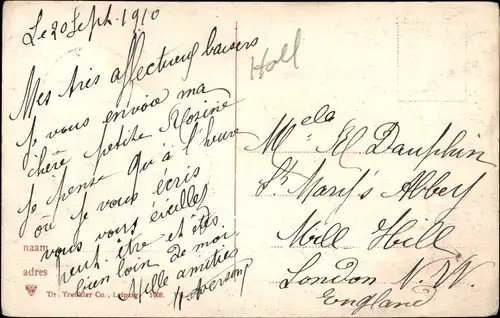 Le 20 Sept. 1910
Mes très affectueux baisers
Je vous envoie ma
chère petite Rosine
Je pense qu'à l'heure
où je vous écris
vous vous éveillez
peut être et êtes
bien loin de moi
Mille amitiés
naam
adres
Dr. Trenkler Co., Leipzig. 1908.
Holl
Melle El Dauphin
St Mary's Abbey
Mill Hill
London N.W.
England